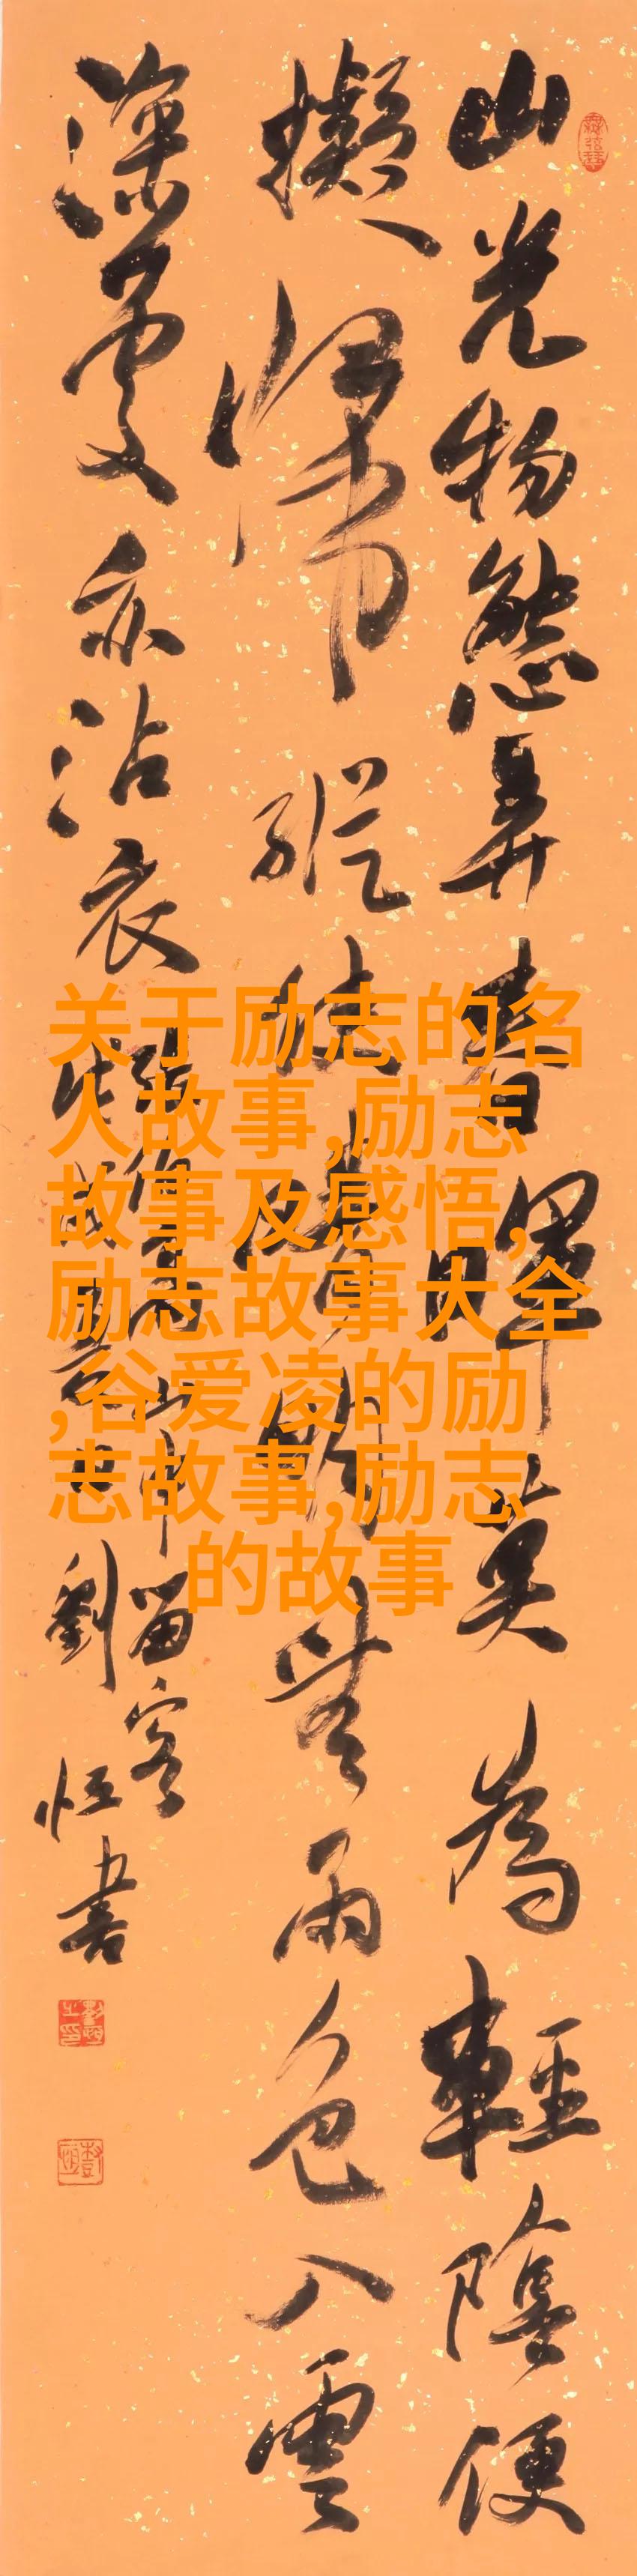 山光物態弄春暉莫為輕陰便
擬歸縱使晴明無雨色入雲
深處亦沾衣
山中留客
劉恒書
关于励志的名
人故事,励志
故事及感悟,
励志故事大全
,谷爱凌的励
志故事,励志
的故事